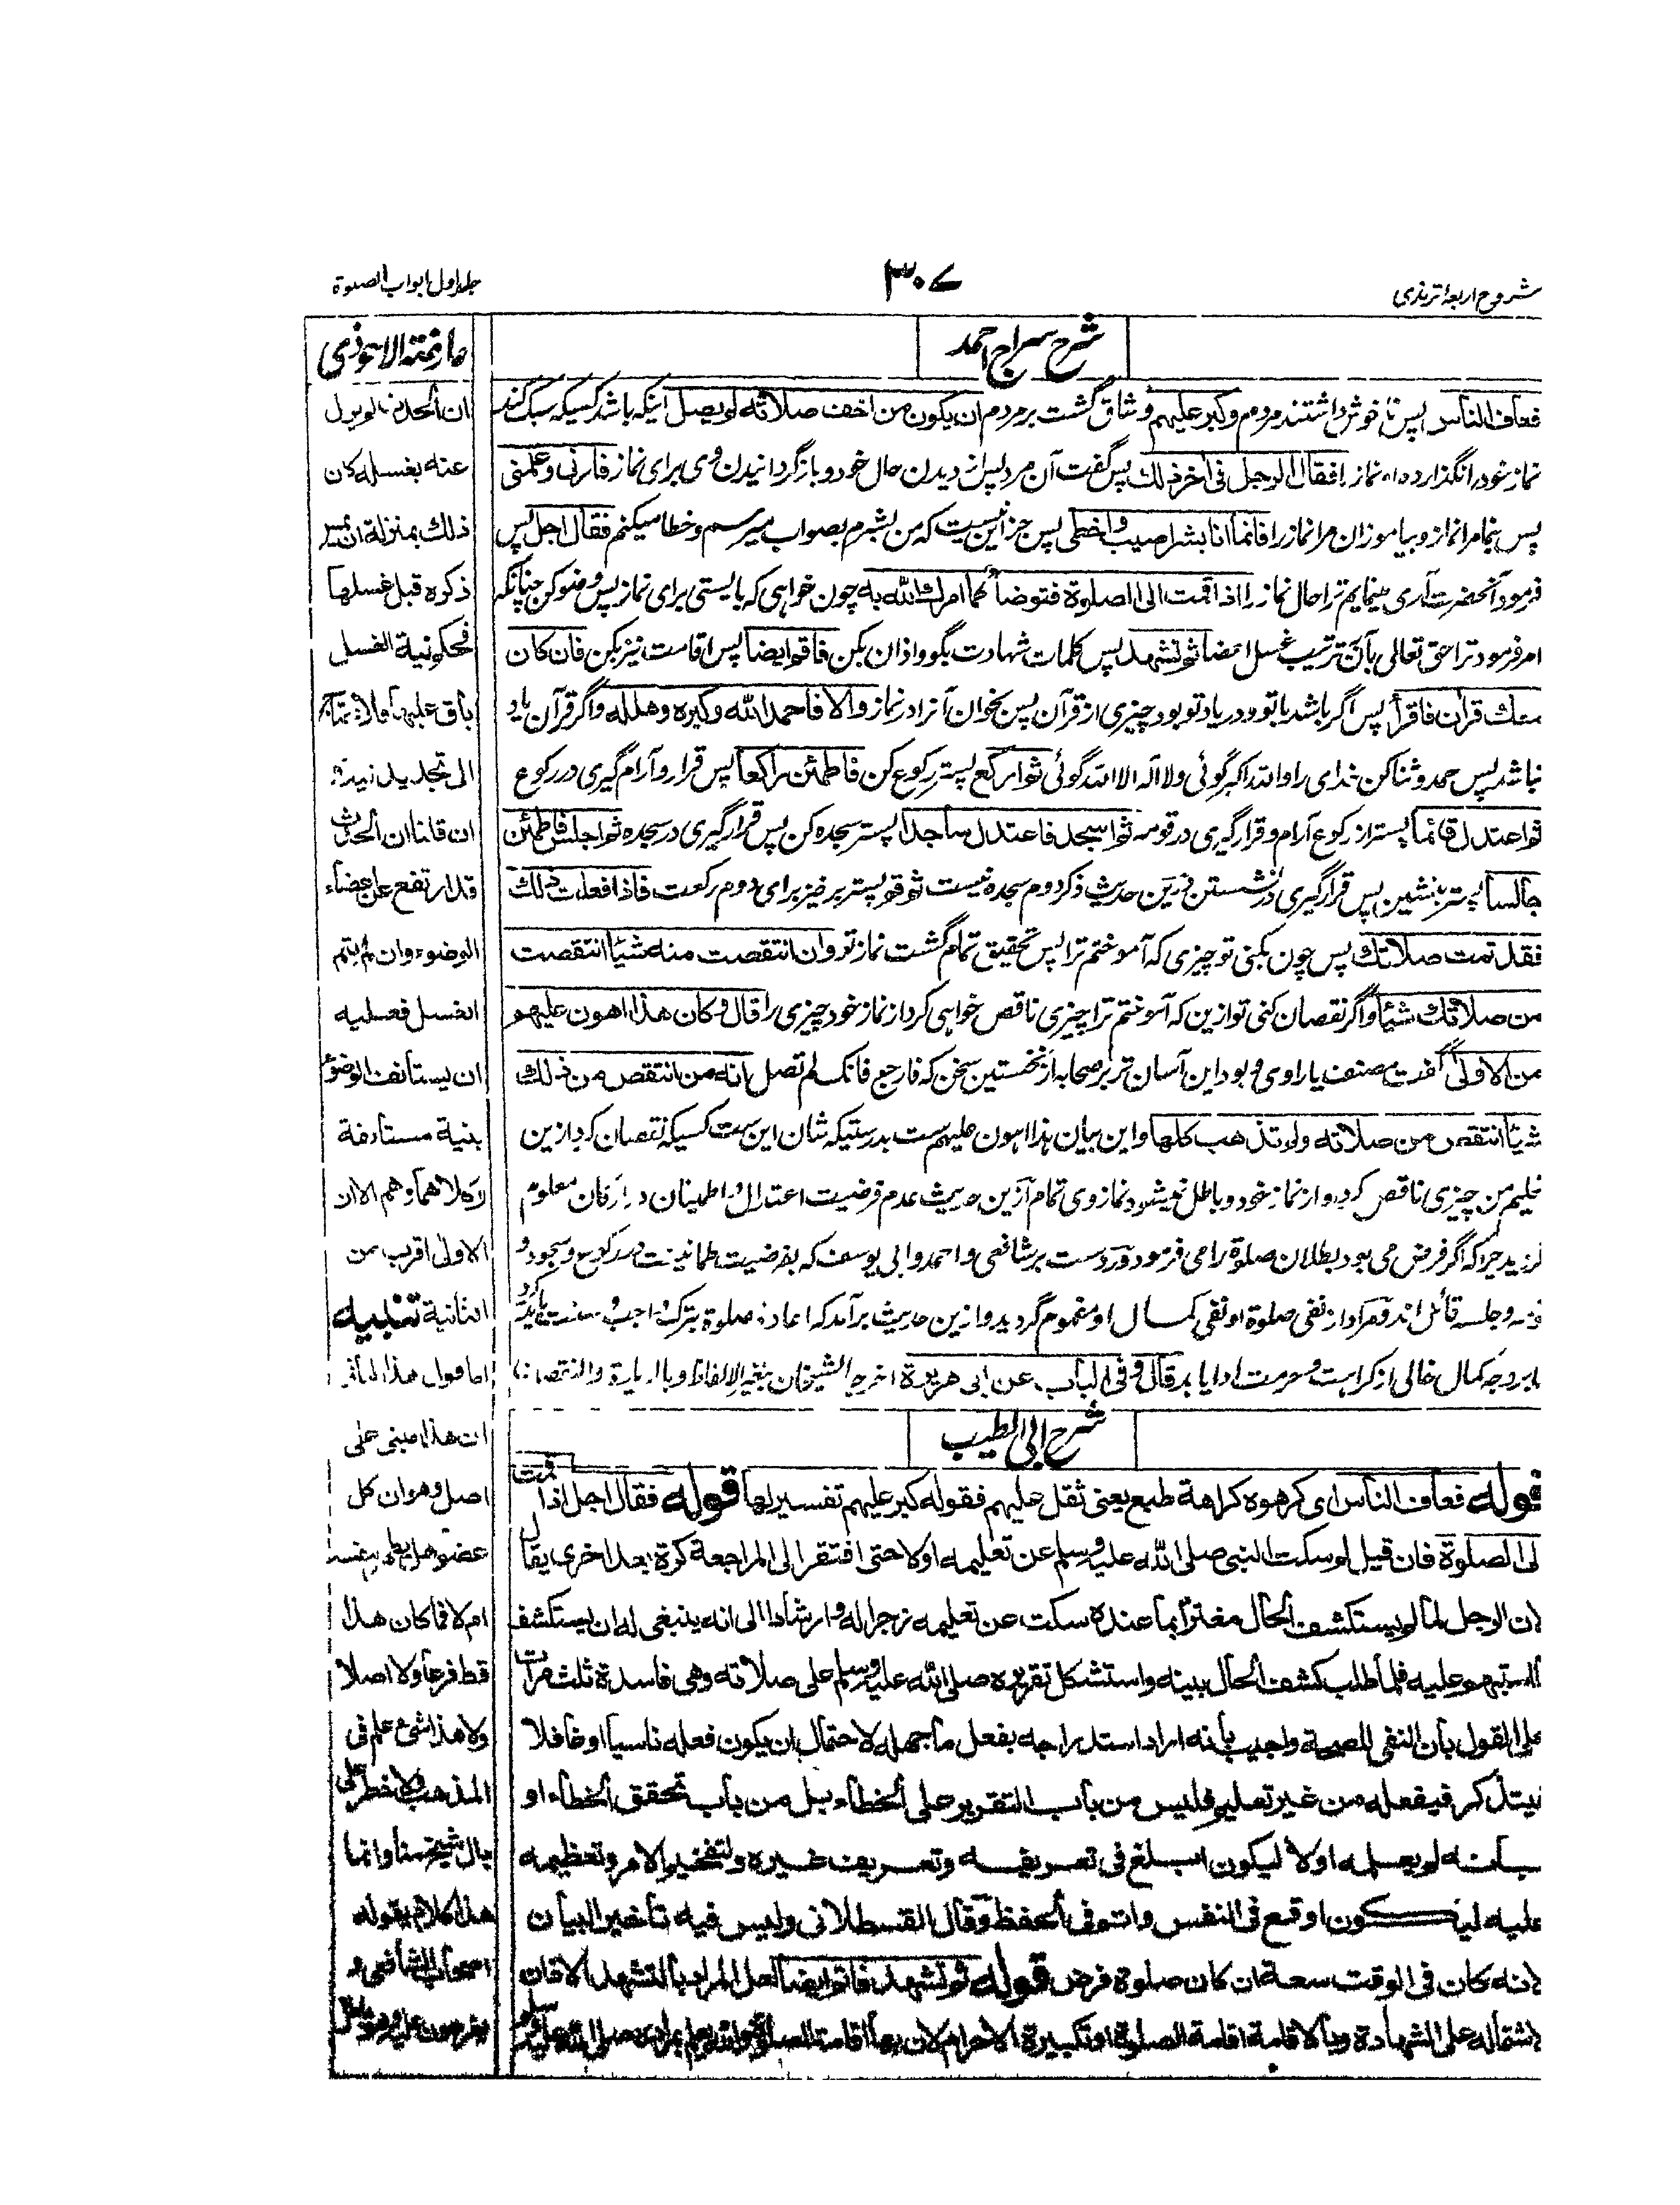 شروح اربعہ ترمذی
۳۰۷
جلد اول ابواب الصلوة
شرح سراج احمد
فعاف الناس پس ناخوش داشتند مردم وکبر علیهم وشاق گشت بر مردم ان یکون من اخف صلاته لم یصل اینکه باشد کسیکه سبک کند
نماز خود را نگذارده نماز فقال الرجل فی آخر ذلك پس گفت آن مرد پس از دیدن حال خود و باز گردانیدن وی برای نماز فارنی وعلمنی
پس بنما مرا نماز و بیاموزان مرا نماز را فانما انا بشر اصیب واخطی پس جز این نیست که من بشرم بصواب میرسم و خطا میکنم فقال اجل پس
فرمود آنحضرت آری مینمایم ترا حال نماز را اذا قمت الی الصلوة فتوضأ کما امرك الله به چون خواهی که بایستی برای نماز پس وضو کن چنانکه
امر فرمود ترا حق تعالی بآن ترتیب غسل اعضا ثم تشهد پس کلمات شهادت بگو و اذان بکن فاقم ایضا پس اقامت نیز بکن فان کان
معك قرآن فاقرأ پس اگر باشد با تو و در یاد تو بود چیزی از قرآن پس بخوان آنرا در نماز والا فاحمد الله وکبره وهلله و اگر قرآن یاد
نباشد پس حمد و ثنا کن خدای را و الله اکبر گوئی و لا اله الا الله گوئی ثم ارکع پستر رکوع کن فاطمئن راکعا پس قرار و آرام گیری در رکوع
ثم اعتدل قائما پستر از رکوع آرام و قرار گیری در قومه ثم اسجد فاعتدل ساجدا پستر سجده کن پس قرار گیری در سجده ثم اجلس فاطمئن
جالسا پستر بنشین پس قرار گیری در نشستن درین حدیث ذکر دوم سجده نیست ثم قم پستر برخیز برای دوم رکعت فاذا فعلت ذلك
فقد تمت صلاتك پس چون بکنی تو چیزی که آموختم ترا پس تحقیق تمام گشت نماز تو وان انتقصت منه شیئا انتقصت
من صلاتك شیئا و اگر نقصان کنی تو ازین که آموختم ترا چیزی ناقص خواهی کرد از نماز خود چیزی را قال وکان هذا اهون علیهم
من الاولی گفت مصنف یا راوی و بود این آسان تر بر صحابه از نخستین سخن که فارجع فانک لم تصل انه من انتقص من ذلك
شیئا انتقص من صلاته ولم تذهب کلها و این بیان هذا اهون علیهم ست بدرستیکه شان این ست کسیکه نقصان کرد ازین
تعلیم من چیزی ناقص کرد از نماز خود و باطل نمیشود نماز وی تمام ازین حدیث عدم فرضیت اعتدال و اطمینان در ارکان معلوم
گردید چرا که اگر فرض می بود بطلان صلوة را می فرمود و رد ست بر شافعی و احمد و ابی یوسف که بفرضیت طمانینت در رکوع و سجود و
قومه و جلسه قائل اند و مراد از نفی صلوة او نفی کمال او مفهوم گردید و ازین حدیث برآمد که اعاده صلوة بترک واجب و سنت باید کرد
تا بر وجه کمال خالی از کراهت و حرمت ادا یابد قال وفی الباب عن ابی هریرة اخرجه الشیخان بتغیر الالفاظ وبالزیادة والنقصان
شرح ابی الطیب
قوله فعاف الناس ای کرهوه کراهة طبع یعنی ثقل علیهم فقوله کبر علیهم تفسیر لها قوله فقال اجل اذا قمت
الی الصلوة فان قیل لم سکت النبی صلی الله علیه وسلم عن تعلیمه اولا حتی افتقر الی المراجعة کرة بعد اخری یقال
ان الرجل لما لم یستکشف الحال مغترا بما عنده سکت عن تعلیمه زجرا له وارشادا الی انه ینبغی له ان یستکشف
ما استبهم علیه فلما طلب کشف الحال بینه واستشکل تقریره صلی الله علیه وسلم علی صلاته وهی فاسدة ثلث مرات
علی القول بان النفی للصحة واجیب بانه اراد استدراجه بفعل ما جهله لاحتمال ان یکون فعله ناسیا او غافلا
فیتذکر فیفعله من غیر تعلیم فلیس من باب التقریر علی الخطأ بل من باب تحقق الخطأ او
بانه لم یعلمه اولا لیکون ابلغ فی تعریفه وتعریف غیره ولتفخیم الامر وتعظیمه
علیه لیکون اوقع فی النفس واثبت فی الحفظ وقال القسطلانی ولیس فیه تاخیر البیان
لانه کان فی الوقت سعة ان کان صلوة فرض قوله ثم تشهد فاقم ایضا لعل المراد بالتشهد الاذان
لاشتماله علی الشهادة وبالاقامة اقامة الصلوة او تکبیرة الاحرام لان بها اقامة الصلوة والله اعلم بمراده صلی الله علیه وسلم
عارضة الاحوذی
ان الحدث لم یزل
عنه بغسله کان
ذلك بمنزلة ان یس
ذکره قبل غسلها
فحکم نیة الغسل
باق علیها فلا یحتاج
الی تجدید نیة
ان قلنا ان الحدث
قد ارتفع عن اعضاء
الوضوء وان لم یتم
الغسل فعلیه
ان یستأنف الوضوء
بنیة مستأنفة
الاولی اقرب من
الثانیة تنبیه
ان هذا مبنی علی
اصل وهو ان کل
عضو هل یطهر بنفسه
ام لا فما کان هذا
قط فرعا ولا اصلا
ولا هذا شیء علم فی
المذهب ولا خطر علی
بال شیخنا وانما
هذا کلام یقوله
اصحاب الشافعی